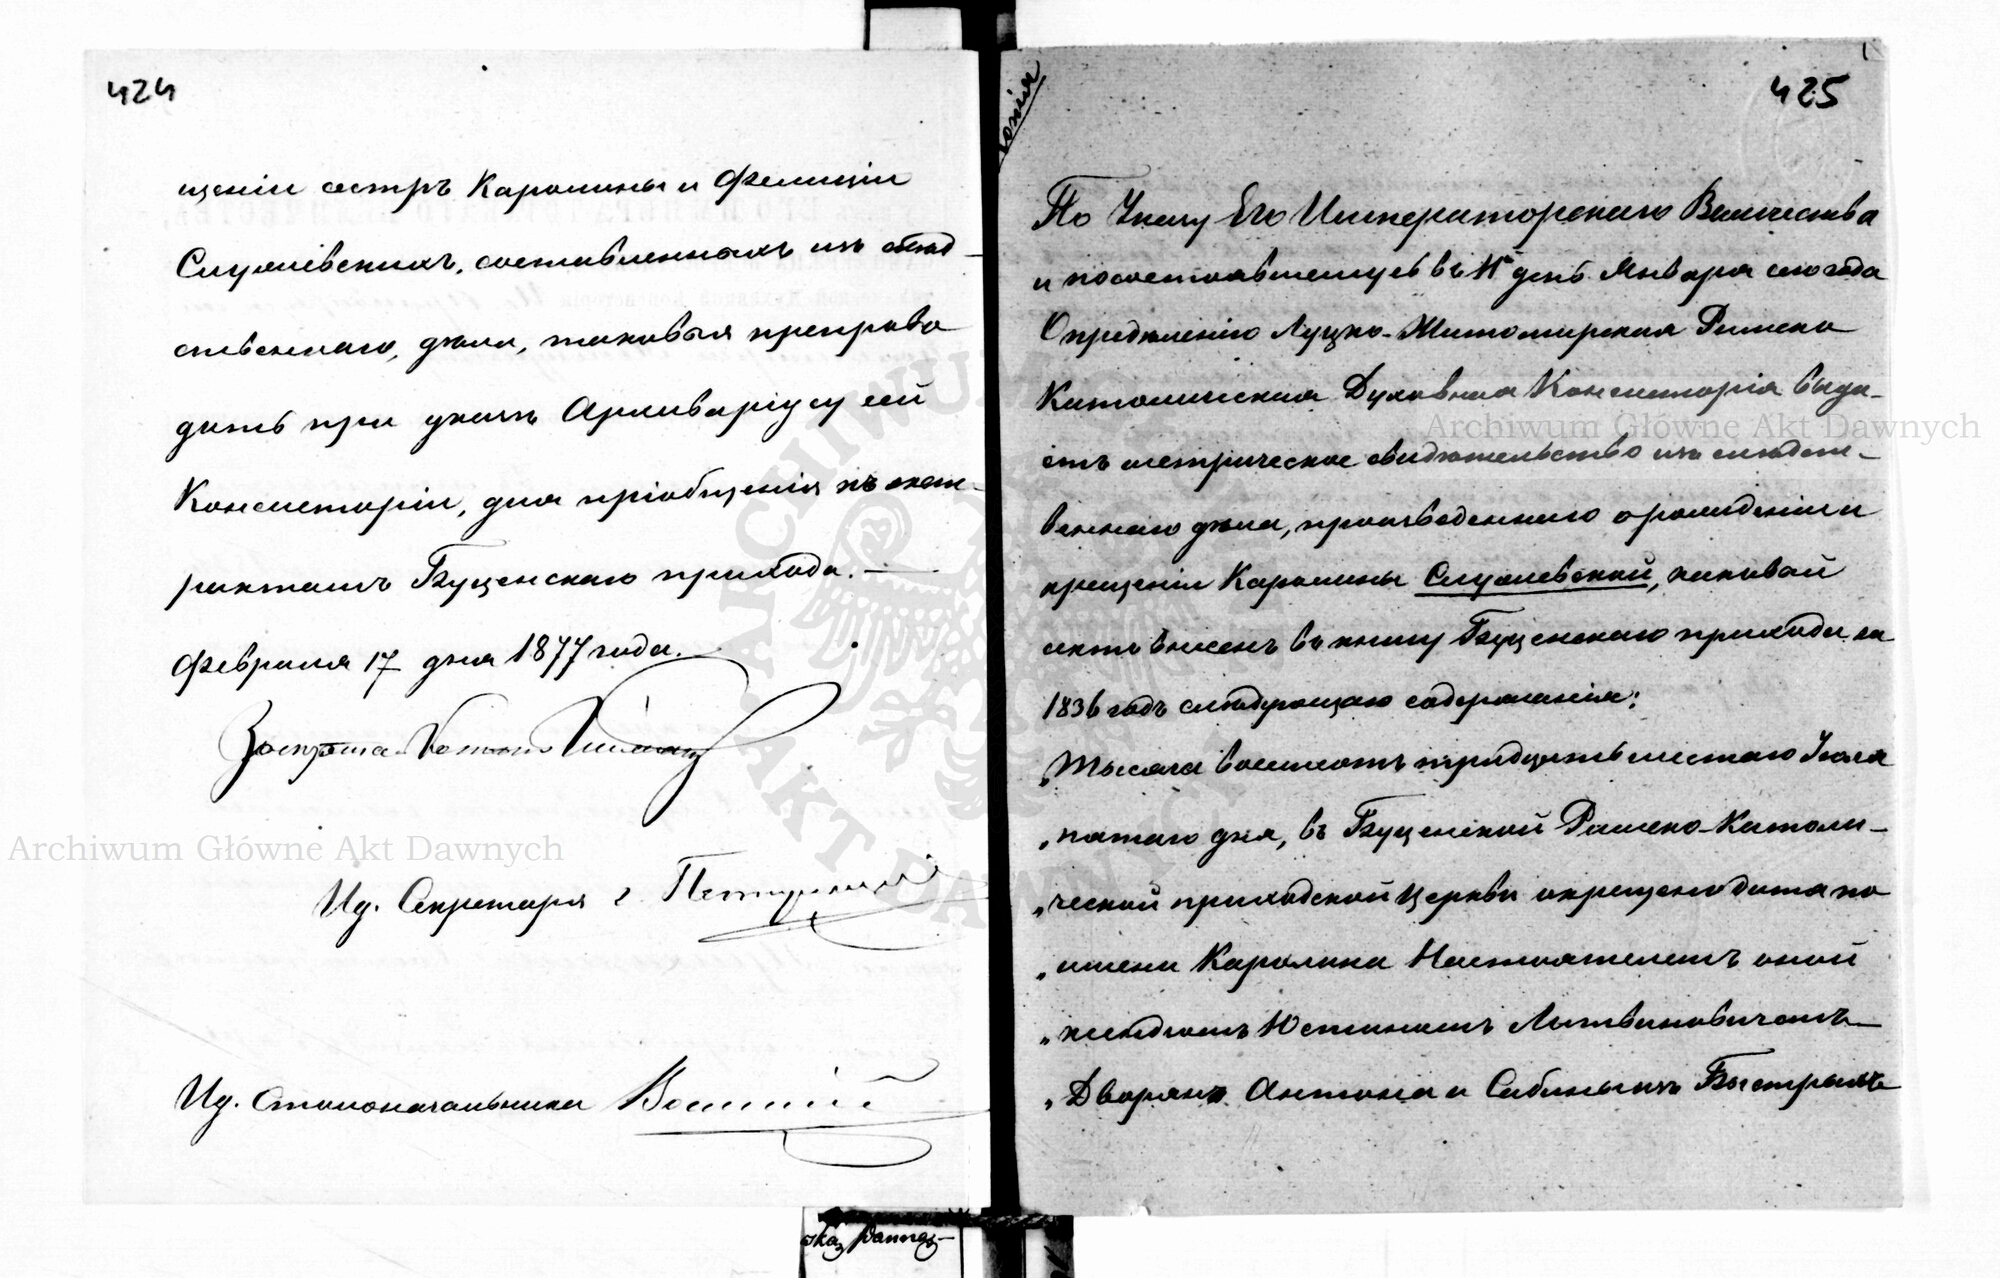 424
щеніи сестръ Каролины и Фелиціи
Слумевскихъ, составленныхъ изъ слѣд-
ственнаго, дѣла, таковыя препрово
дить при указѣ Архиваріусу сей
Консисторіи, для пріобщенія къ экст-
рактамъ Буценскаго прихода. —
Февраля 17 дня 1877 года.
И.д. Секретаря г.
И.д. Столоначальника
425
копія
По Указу Его Императорскаго Величества
и посостоявшемуся въ 11 день Января сего года
Опредѣленію Луцко-Житомирская Римско
Католическая Духовная Консисторія выда-
етъ метрическое свидѣтельство изъ слѣдст-
веннаго дѣла, произведеннаго о рожденіи и
крещеніи Каролины Слумевской, каковой
актъ внесенъ въ книгу Буценскаго прихода за
1836 годъ слѣдующаго содержанія:
„Тысяча восемсотъ тридцать шестаго Іюля
„пятаго дня, въ Буценской Римско-Католи-
„ческой приходской Церкви окрещено дитя по
„имени Каролина Настоятелемъ оной
„ксендзомъ Юстиномъ Литвиновичемъ
„Дворянъ Антона и Сабины изъ Быстрыхъ
Archiwum Główne Akt Dawnych
Archiwum Główne Akt Dawnych
ARCHIWUM
AKT DAWNYCH